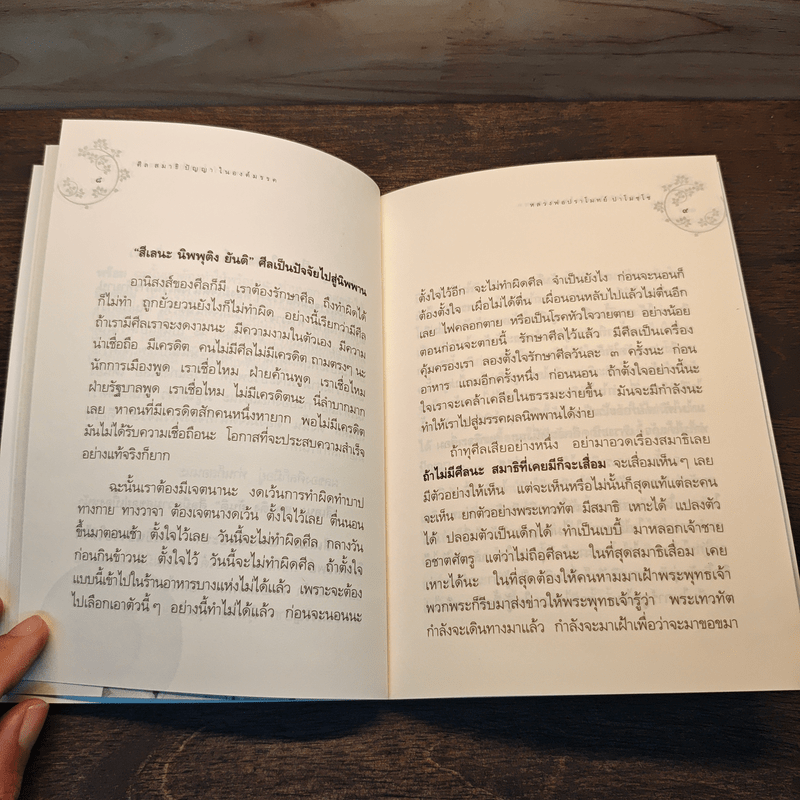 ๘
ศีล สมาธิ ปัญญา ในองค์มรรค
"สีเลนะ นิพพุติง ยันติ" ศีลเป็นปัจจัยไปสู่นิพพาน
อานิสงส์ของศีลก็มี เราต้องรักษาศีล ถึงทำผิดได้
ก็ไม่ทำ ถูกยั่วยวนยังไงก็ไม่ทำผิด อย่างนี้เรียกว่ามีศีล
ถ้าเรามีศีลเราจะงดงามนะ มีความงามในตัวเอง มีความ
น่าเชื่อถือ มีเครดิต คนไม่มีศีลไม่มีเครดิต ถามตรงๆ นะ
นักการเมืองพูด เราเชื่อไหม ฝ่ายค้านพูด เราเชื่อไหม
ฝ่ายรัฐบาลพูด เราเชื่อไหม ไม่มีเครดิตนะ นี่ลำบากมาก
เลย หาคนที่มีเครดิตสักคนหนึ่งหายาก พอไม่มีเครดิต
มันไม่ได้รับความเชื่อถือนะ โอกาสที่จะประสบความสำเร็จ
อย่างแท้จริงก็ยาก
ฉะนั้นเราต้องมีเจตนานะ งดเว้นการทำผิดทำบาป
ทางกาย ทางวาจา ต้องเจตนางดเว้น ตั้งใจไว้เลย ตื่นนอน
ขึ้นมาตอนเช้า ตั้งใจไว้เลย วันนี้จะไม่ทำผิดศีล กลางวัน
ก่อนกินข้าวนะ ตั้งใจไว้ วันนี้จะไม่ทำผิดศีล ถ้าตั้งใจ
แบบนี้เข้าไปในร้านอาหารบางแห่งไม่ได้แล้ว เพราะจะต้อง
ไปเลือกเอาตัวนี้ๆ อย่างนี้ทำไม่ได้แล้ว ก่อนจะนอนนะ
หลวงพ่อปราโมทย์ ปาโมชฺโช
๙
ตั้งใจไว้อีก จะไม่ทำผิดศีล จำเป็นยังไง ก่อนจะนอนก็
ต้องตั้งใจ เผื่อไม่ได้ตื่น เผื่อนอนหลับไปแล้วไม่ตื่นอีก
เลย ไฟคลอกตาย หรือเป็นโรคหัวใจวายตาย อย่างน้อย
ตอนก่อนจะตายนี้ รักษาศีลไว้แล้ว มีศีลเป็นเครื่อง
คุ้มครองเรา ลองตั้งใจรักษาศีลวันละ ๓ ครั้งนะ ก่อน
อาหาร แถมอีกครั้งหนึ่ง ก่อนนอน ถ้าตั้งใจอย่างนี้นะ
ใจเราจะเคล้าเคลียในธรรมะง่ายขึ้น มันจะมีกำลังนะ
ทำให้เราไปสู่มรรคผลนิพพานได้ง่าย
ถ้าทุศีลเสียอย่างหนึ่ง อย่ามาอวดเรื่องสมาธิเลย
ถ้าไม่มีศีลนะ สมาธิที่เคยมีก็จะเสื่อม จะเสื่อมเห็นๆ เลย
มีตัวอย่างให้เห็น แต่จะเห็นหรือไม่นั้นก็สุดแท้แต่ละคน
จะเห็น ยกตัวอย่างพระเทวทัต มีสมาธิ เหาะได้ แปลงตัว
ได้ ปลอมตัวเป็นเด็กได้ ทำเป็นเบบี้ มาหลอกเจ้าชาย
อชาตศัตรู แต่ว่าไม่ถือศีลนะ ในที่สุดสมาธิเสื่อม เคย
เหาะได้นะ ในที่สุดต้องให้คนหามมาเฝ้าพระพุทธเจ้า
พวกพระก็รีบมาส่งข่าวให้พระพุทธเจ้ารู้ว่า พระเทวทัต
กำลังจะเดินทางมาแล้ว กำลังจะมาเฝ้าเพื่อว่าจะมาขอขมา